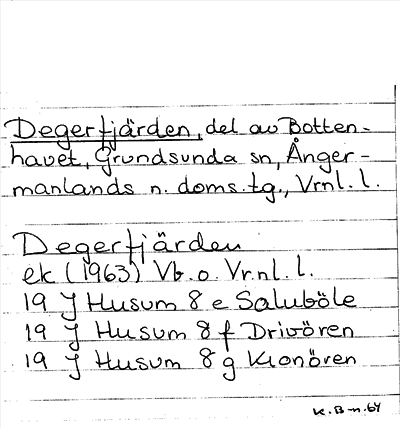 Degerfjärden, del av Botten-
havet, Grundsunda sn, Ånger-
manlands n. doms.tg., Vrnl. l.
Degerfjärden
ek (1963) Vb. o. Vrnl. l.
19 J Husum 8 e Saluböle
19 J Husum 8 f Drivören
19 J Husum 8 g Klonören
K. B-n. 64